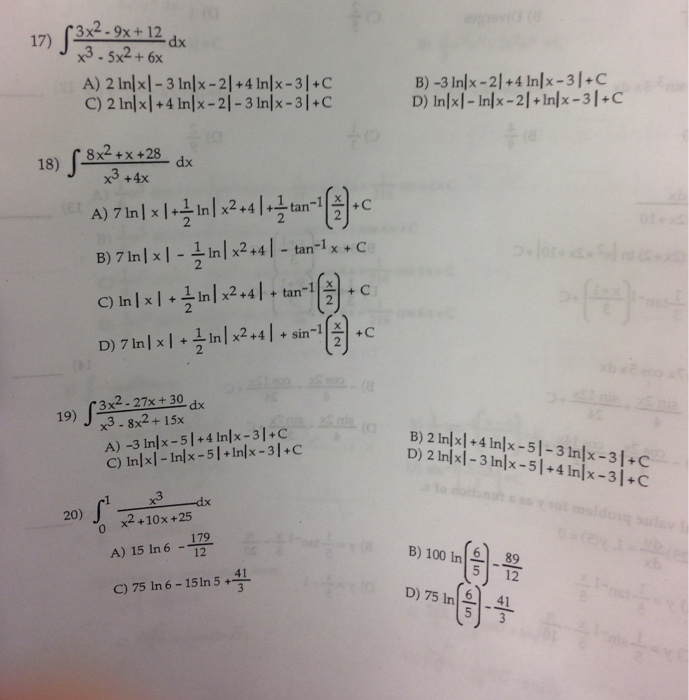 17) ∫ (3x² - 9x + 12)/(x³ - 5x² + 6x) dx
A) 2 ln|x| - 3 ln|x - 2| + 4 ln|x - 3| + C B) -3 ln|x - 2| + 4 ln|x - 3| + C
C) 2 ln|x| + 4 ln|x - 2| - 3 ln|x - 3| + C D) ln|x| - ln|x - 2| + ln|x - 3| + C
18) ∫ (8x² + x + 28)/(x³ + 4x) dx
A) 7 ln| x | + 1/2 ln| x² + 4 | + 1/2 tan⁻¹(x/2) + C
B) 7 ln| x | - 1/2 ln| x² + 4 | - tan⁻¹ x + C
C) ln| x | + 1/2 ln| x² + 4 | + tan⁻¹(x/2) + C
D) 7 ln| x | + 1/2 ln| x² + 4 | + sin⁻¹(x/2) + C
19) ∫ (3x² - 27x + 30)/(x³ - 8x² + 15x) dx
A) -3 ln|x - 5| + 4 ln|x - 3| + C B) 2 ln|x| + 4 ln|x - 5| - 3 ln|x - 3| + C
C) ln|x| - ln|x - 5| + ln|x - 3| + C D) 2 ln|x| - 3 ln|x - 5| + 4 ln|x - 3| + C
20) ∫₀¹ x³/(x² + 10x + 25) dx
A) 15 ln 6 - 179/12 B) 100 ln(6/5) - 89/12
C) 75 ln 6 - 15 ln 5 + 41/3 D) 75 ln(6/5) - 41/3